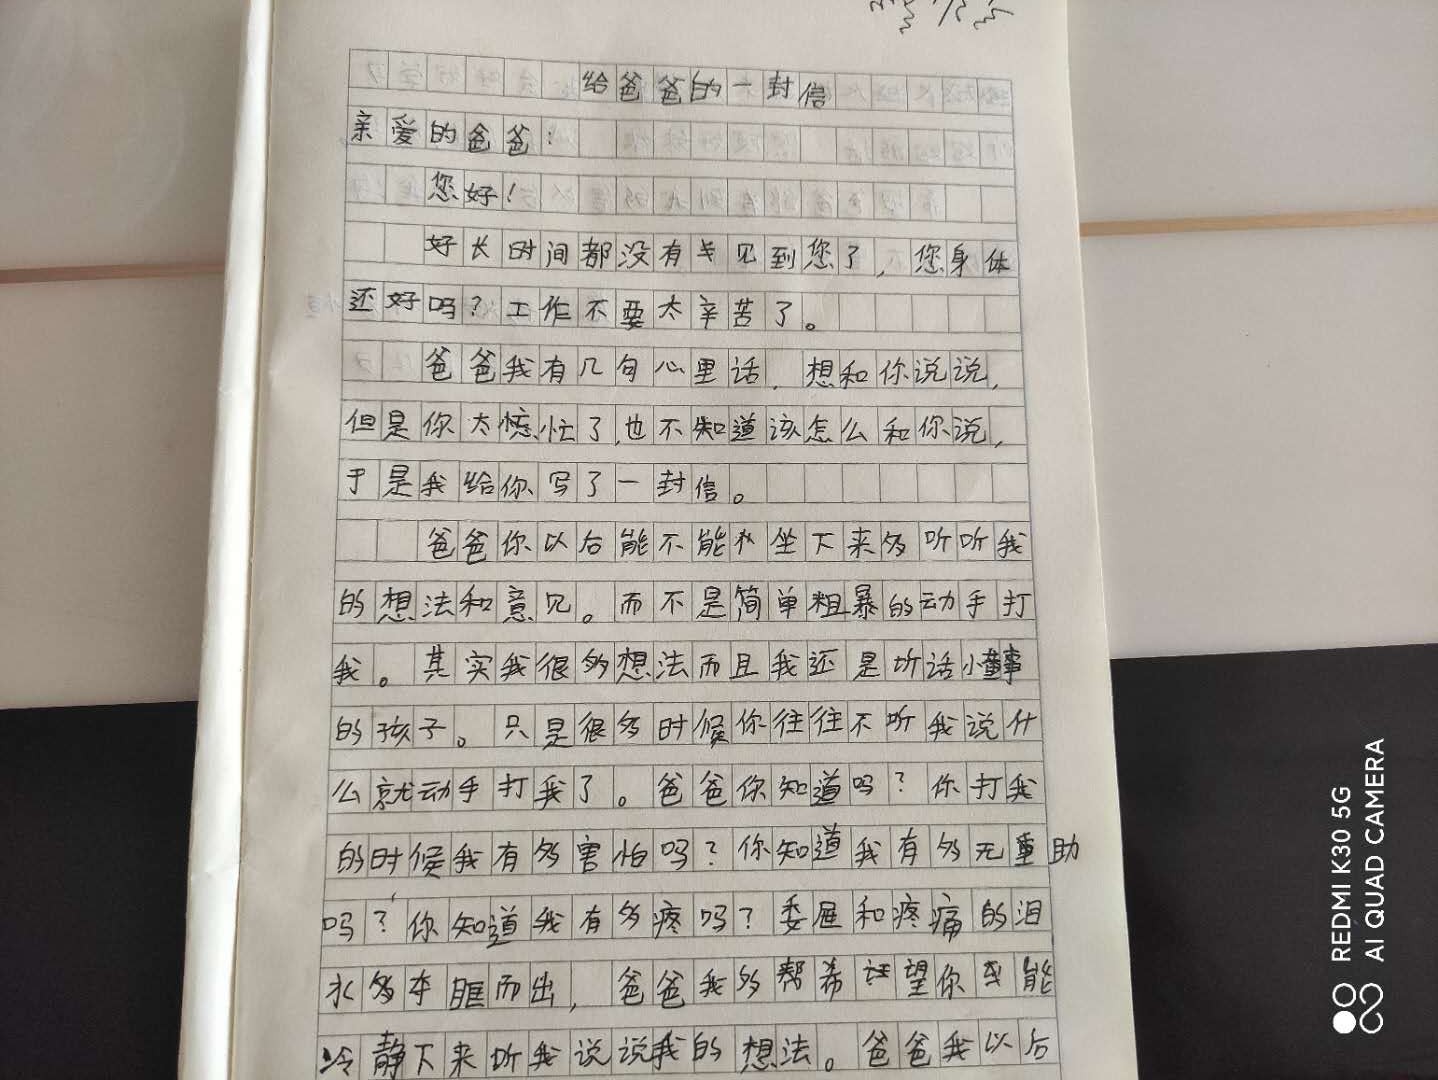 给爸爸的一封信
亲爱的爸爸：
您好！
好长时间都没有见到您了，您身体
还好吗？工作不要太辛苦了。
爸爸我有几句心里话，想和你说说，
但是你太忙了，也不知道该怎么和你说，
于是我给你写了一封信。
爸爸你以后能不能坐下来多听听我
的想法和意见。而不是简单粗暴的动手打
我。其实我很多想法而且我还是听话小懂事
的孩子。只是很多时候你往往不听我说什
么就动手打我了。爸爸你知道吗？你打我
的时候我有多害怕吗？你知道我有多无助
吗？你知道我有多疼吗？委屈和疼痛的泪
水夺眶而出，爸爸我多希望你能
冷静下来听我说说我的想法。爸爸我以后
REDMI K30 5G
AI QUAD CAMERA